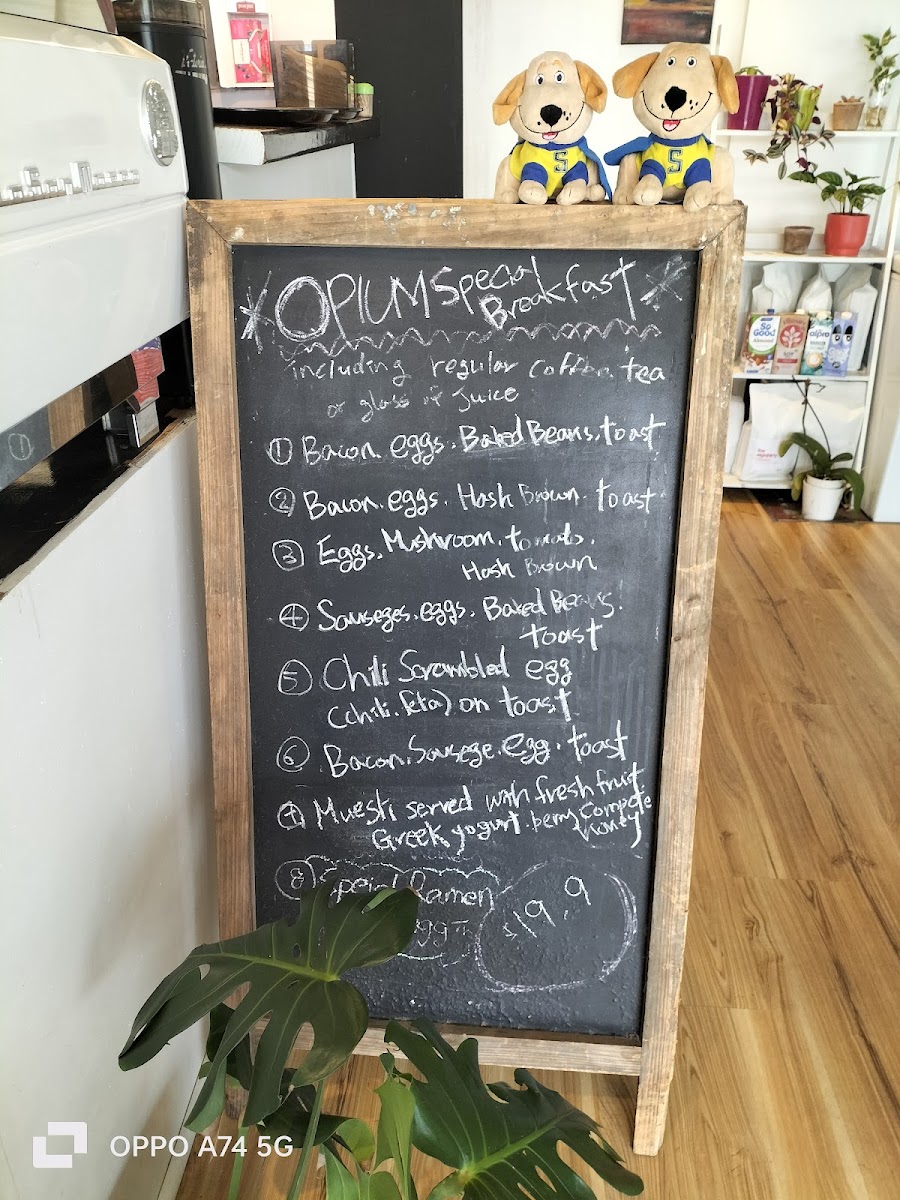 *OPIUM Special Breakfast*
including regular coffee, tea
or glass of juice
① Bacon. eggs. Baked Beans. toast
② Bacon. eggs. Hash Brown. toast
③ Eggs. Mushroom. tomato.
Hash Brown
④ Sauseges. eggs. Baked Beans.
toast
⑤ Chili Scrambled egg
(chili. feta) on toast
⑥ Bacon. Sausege. egg. toast
⑦ Muesti served with fresh fruit
Greek yogurt. berry compote
Honey
⑧ Special Ramen
19.9
S
S
So Good
Almond
alpro
OPPO A74 5G